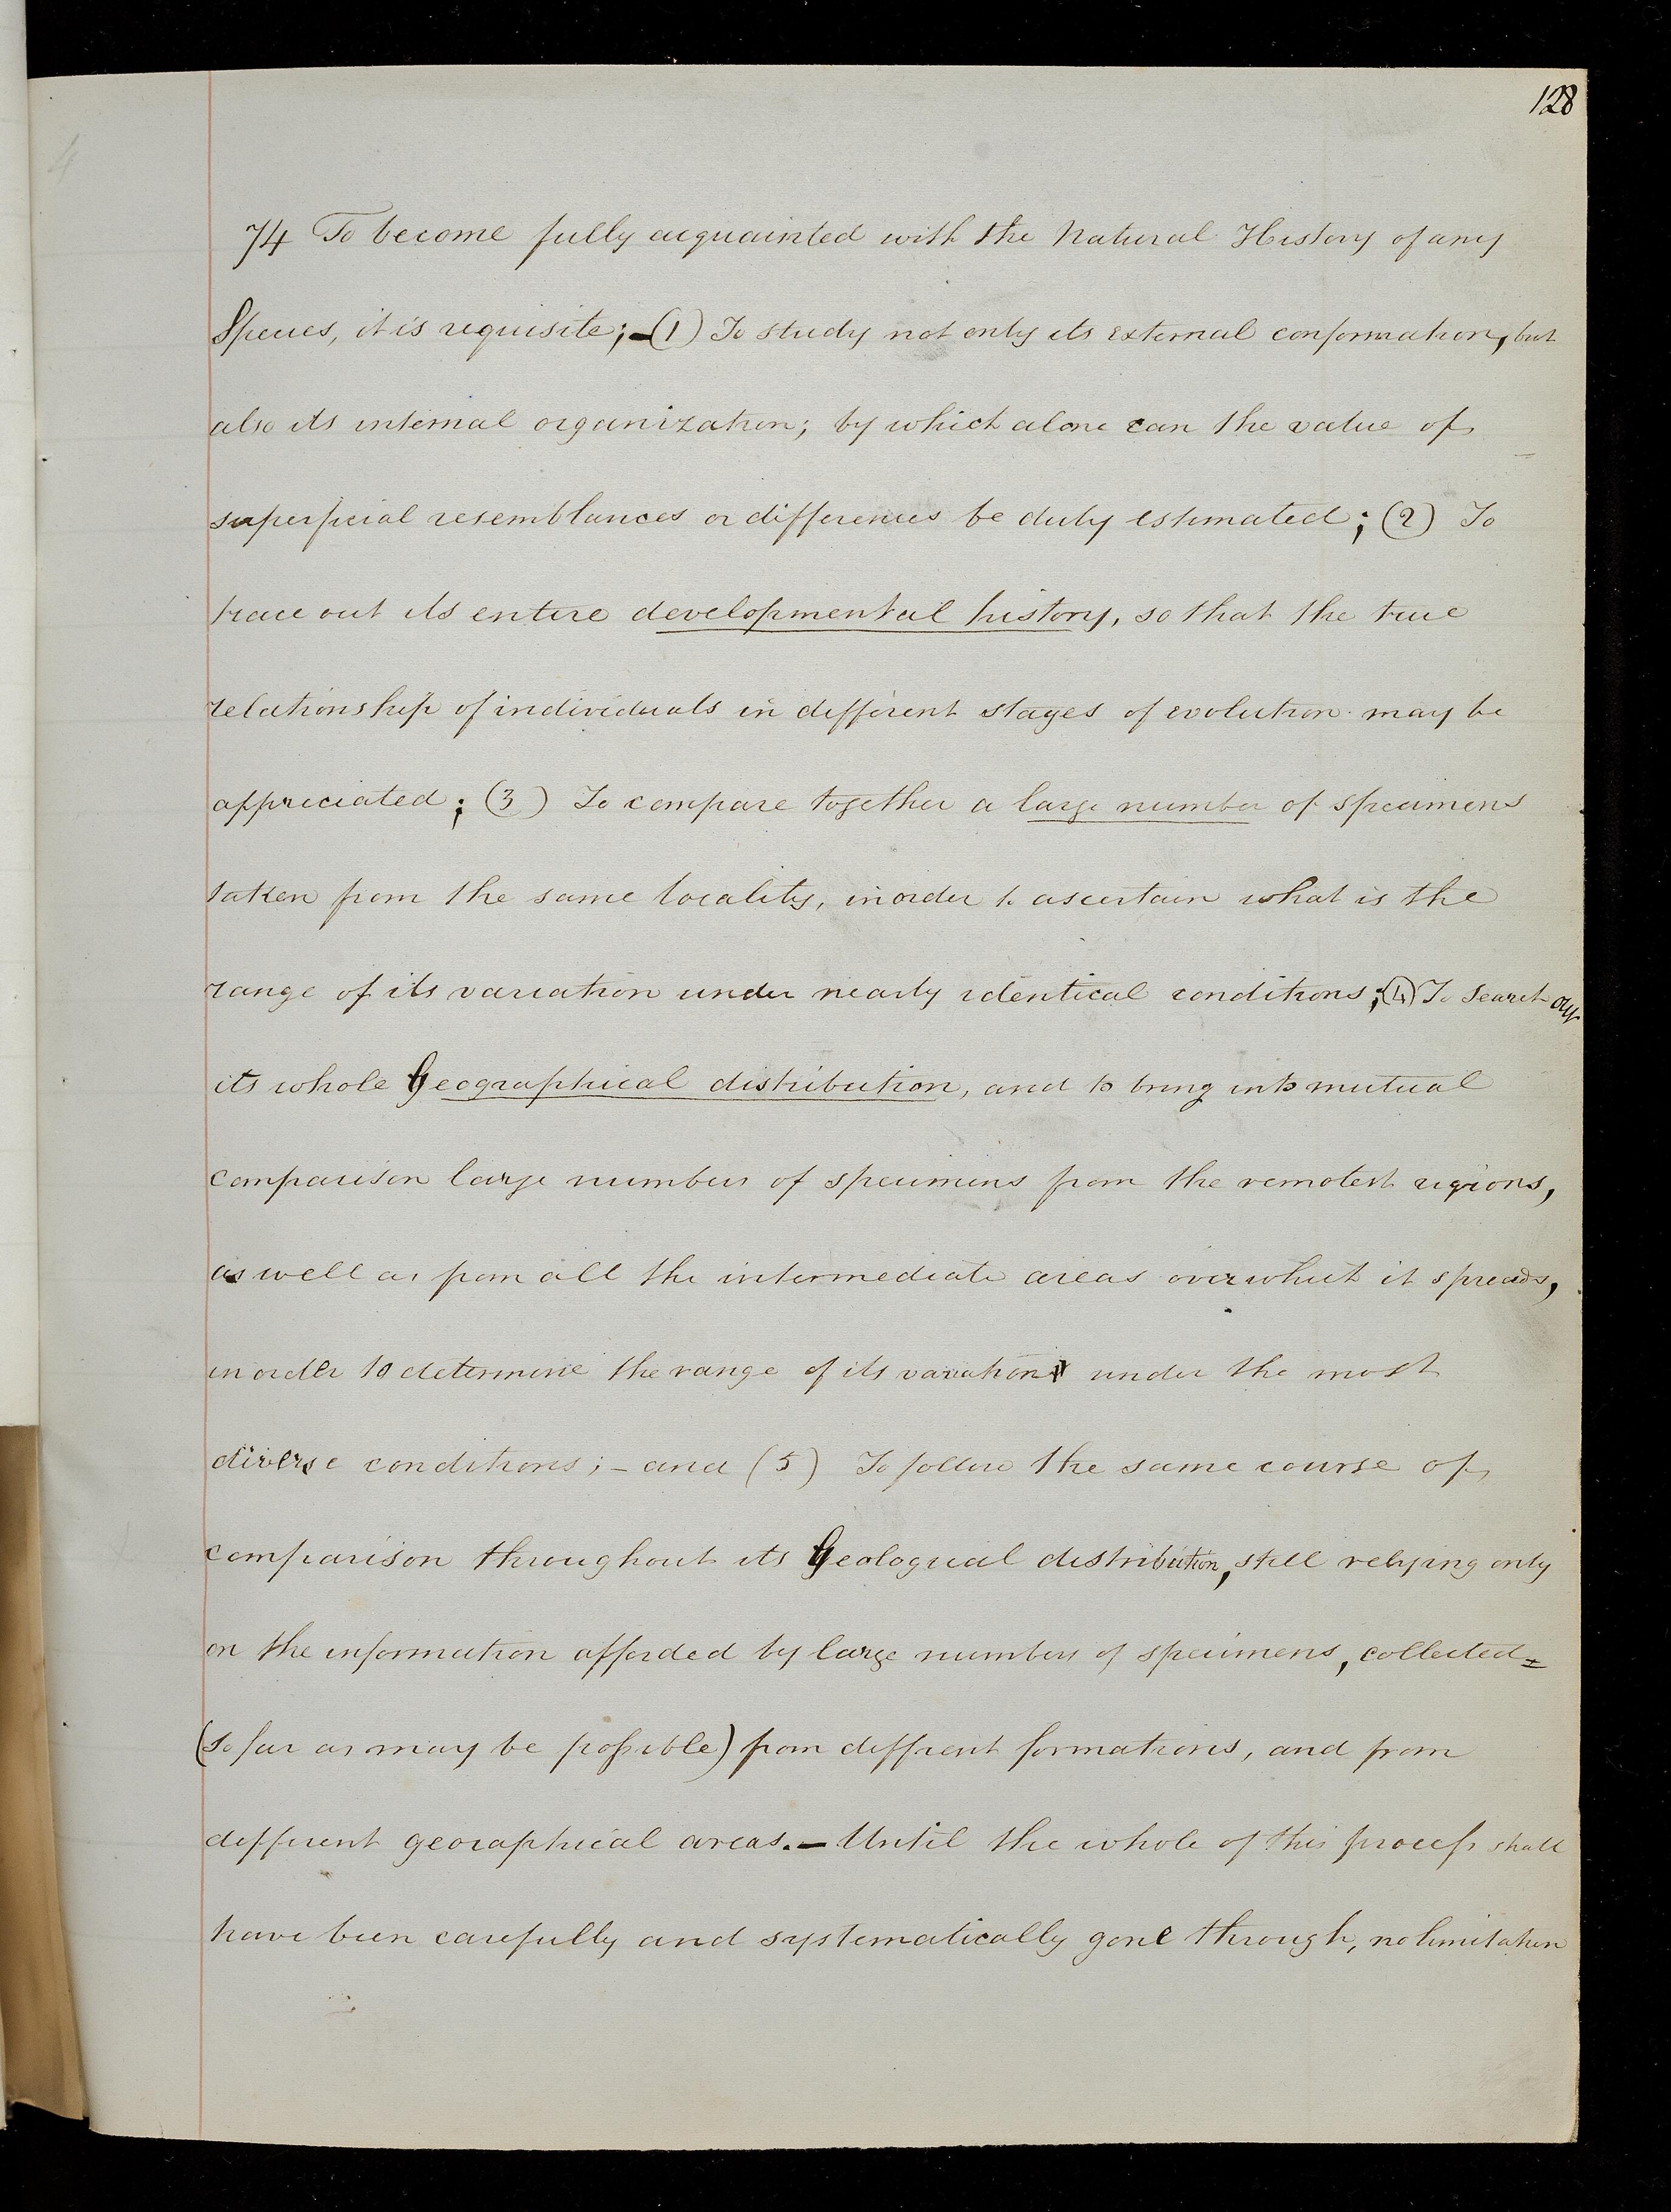 128
74 To become fully acquainted with the Natural History of any
Species, it is requisite;—(1) To study not only its external conformation, but
also its internal organization; by which alone can the value of
superficial resemblances or differences be duly estimated; (2) To
trace out its entire developmental history, so that the true
relationship of individuals in different stages of evolution may be
appreciated; (3) To compare together a large number of specimens
taken from the same locality, in order to ascertain what is the
range of its variation under nearly identical conditions; (4) To search out
its whole Geographical distribution, and to bring into mutual
comparison large numbers of specimens from the remotest regions,
as well as from all the intermediate areas over which it spreads,
in order to determine the range of its variation under the most
diverse conditions;—and (5) To follow the same course of
comparison throughout its Geological distribution, still relying only
on the information afforded by large numbers of specimens, collected
(so far as may be possible) from different formations, and from
different geographical areas.—Until the whole of this process shall
have been carefully and systematically gone through, no limitation